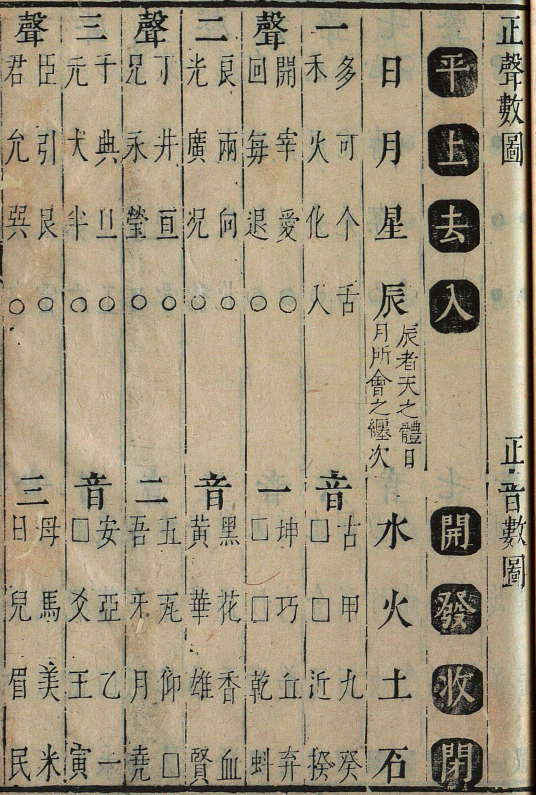 正聲數圖
正音數圖
平上去入
開發收閉
日月星辰
辰者天之體日
月所會之纏次
水火土石
一聲二聲三聲
多可个舌
禾火化人
開宰愛○
回每退○
良兩向○
光廣况○
丁井亘○
兄永瑩○
千典旦○
元犬半○
臣引艮○
君允巽○
音一音二音三
古甲九癸
□□近揆
坤巧丘弃
□□乾蚪
黑花香血
黄華雄賢
五瓦仰□
吾牙月堯
安亞乙一
□爻王寅
母馬美米
日兒眉民